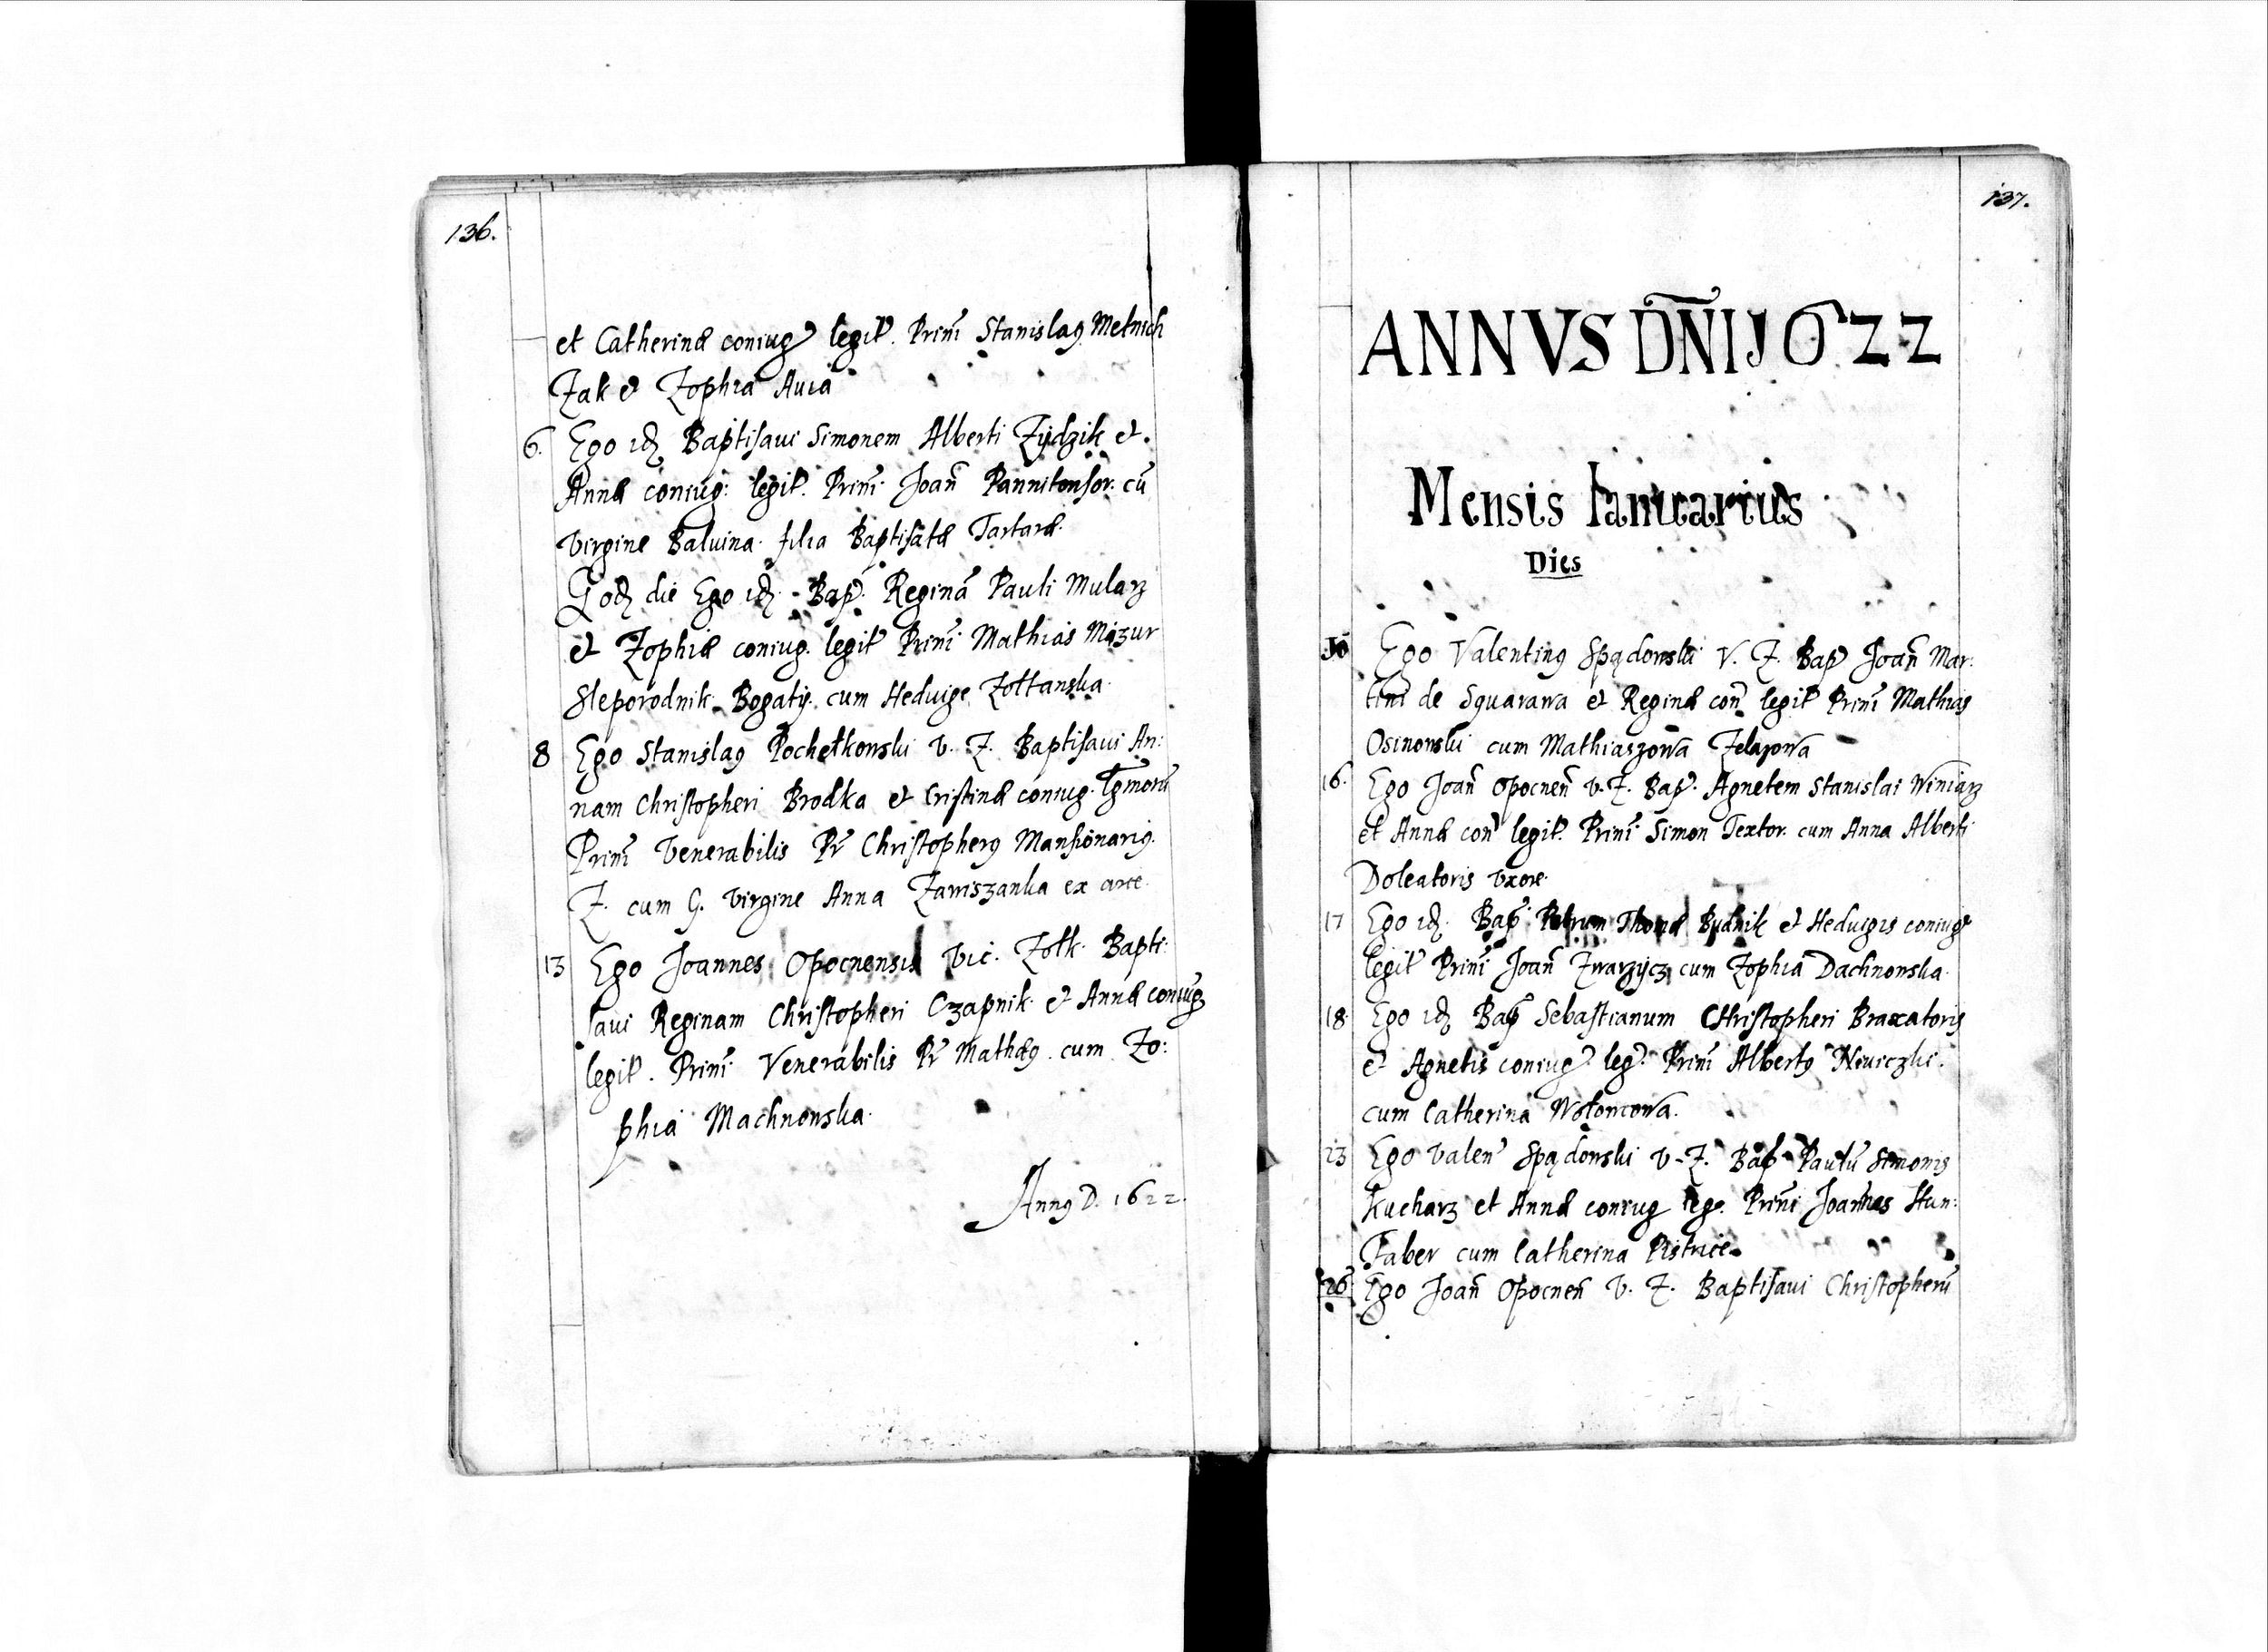 136.
et Catherinæ coniug legit. Prini Stanislaꝰ Metnich
Zak et Zophia Auia
6. Ego idẽ Baptisaui Simonem Alberti Zijdzik et
Annæ coniug: legit. Prini Joañ Pannitonsor. cũ
Virgine Baluina filia Baptisatæ Tartaræ.
Eodẽ die Ego idẽ Bap. Reginã Pauli Mularz
et Zophiæ coniug. legit Prini Mathias Mazur
Sleporodnik Bogatij cum Heduige Zołtanska
8 Ego Stanislaꝰ Pochełkowski V. Z. Baptisaui An:
nam Christopheri Brodka et Cristinæ coniug. Lgmorũ
Prini Venerabilis Pr Christopherꝰ Mansionariꝰ
Z. cum G. Virgine Anna Zawiszanka ex arce
13 Ego Joannes Opocnensis Vic. Zołk. Bapti:
saui Reginam Christopheri Czapnik et Annæ coniug
legit. Prini Venerabilis Pr Mathæꝰ cum Zo:
phia Machnowska
Annꝰ D. 1622.
137.
ANNVS DÑI 1622
Mensis Ianuarius
Dies
Ego Valentinꝰ Spądowski V. Z. Bap Joañ Mar:
tini de Squarawa et Reginæ coñ legit Prini Mathias
Osinowski cum Mathiaszowa Zelazowa
16. Ego Joañ Opocneñ V. Z. Bap. Agnetem Stanislai Winiarz
et Annæ coñ legit. Prini Simon Textor cum Anna Alberti
Doleatoris Vxore.
17 Ego idẽ Bap. Petrum Thomæ Budnik et Heduigis coniug
legit Prini Joañ Zwarzijcz cum Zophia Dachnowska
18. Ego idẽ Bap Sebastianum CHristopheri Braxatoris
et Agnetis coniug leg. Prini Albertꝰ Niewiczki
cum Catherina Wołoncowa.
23 Ego Valen Spądowski V. Z. Bap Paulũ Simonis
Kucharz et Annæ coniug leg. Prini Joannes Hun:
Faber cum Catherina Pistrice
26 Ego Joañ Opocneñ V. Z. Baptisaui Christopherũ